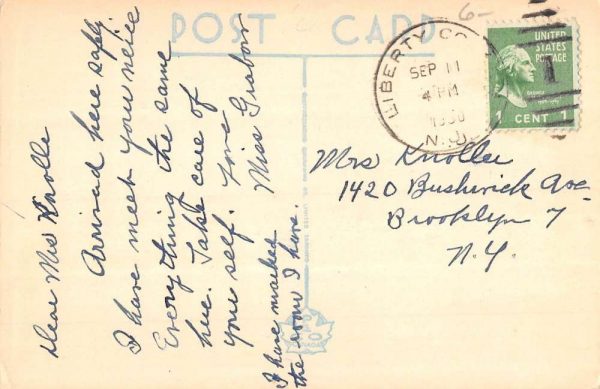 POST CARD
Dear Mrs Knolle
Arrived here safely.
I have meet your neice
Everything the same
here. Take care of
your self. Love
Miss Grabow
I have marked
the room I have.
LIBERTY CO
SEP 11
4 PM
N.Y.
UNITED
STATES
POSTAGE
1 CENT 1
6-
Mrs Knolle
1420 Bushwick Ave
Brooklyn 7
N.Y.